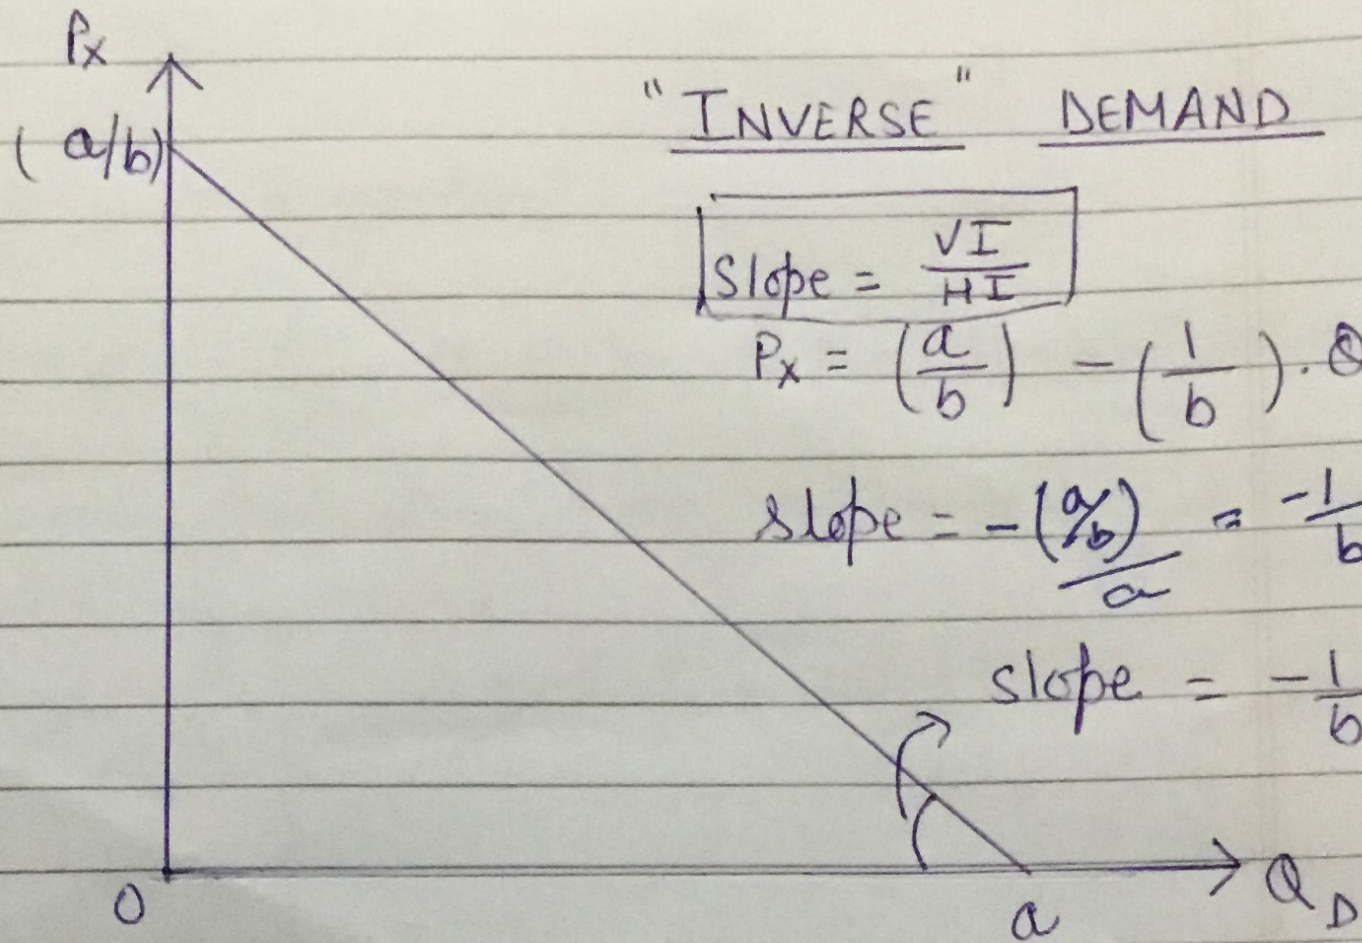 Px
"INVERSE" DEMAND
(a/b)
Slope = VI/HI
Px = (a/b) - (1/b).
slope = -(a/b)/a = -1/b
slope = -1/b
0
a
QD